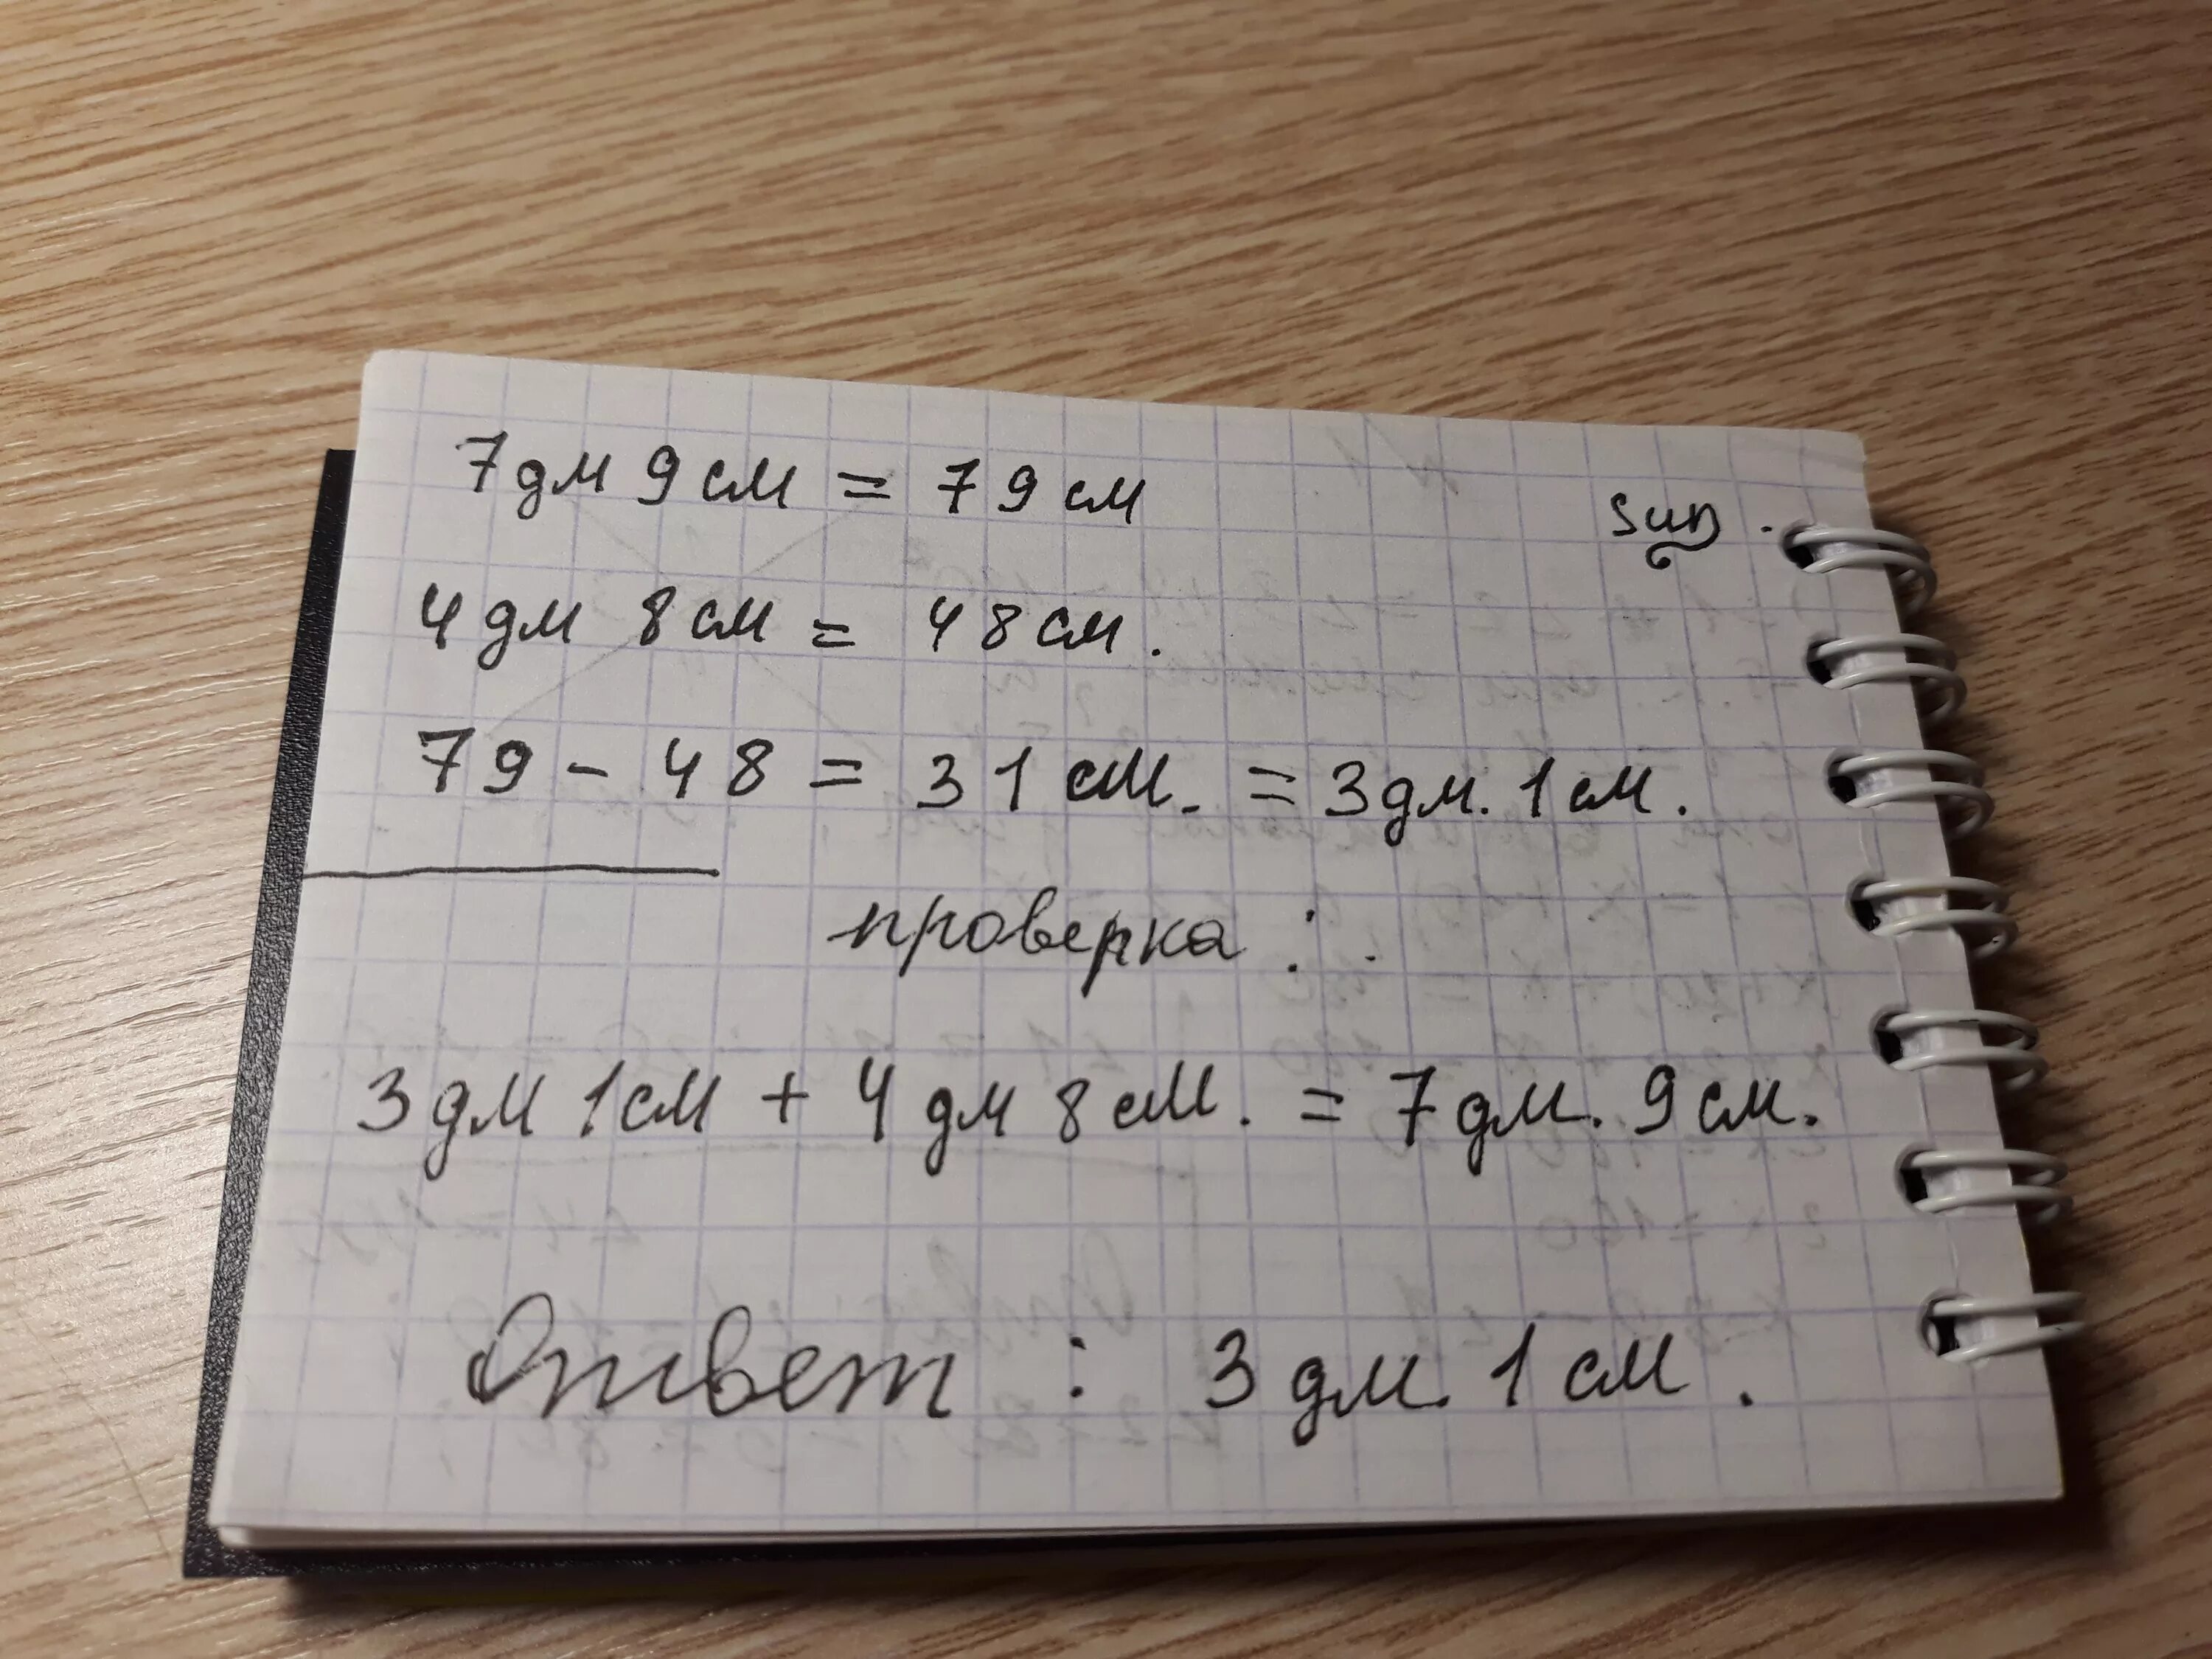 7дм 9см = 79см
sun.
4дм 8см = 48см.
79 - 48 = 31 см. = 3дм. 1см.
проверка:
3дм 1см + 4дм 8см. = 7дм. 9см.
Ответ : 3дм. 1см.